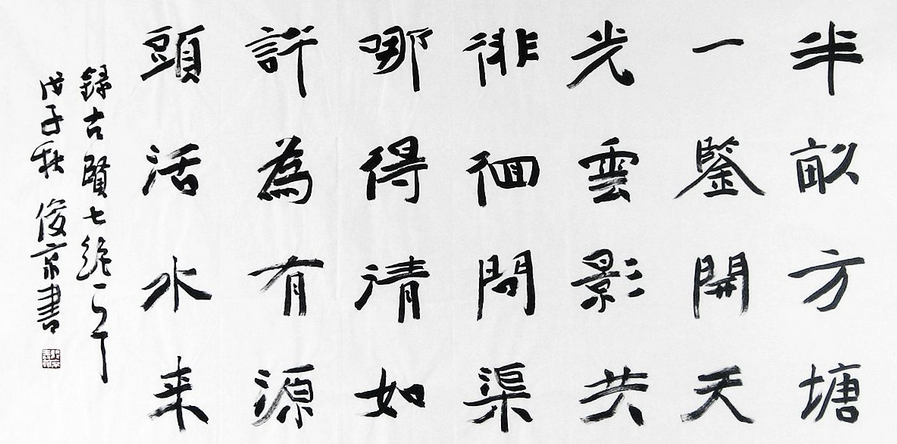 半畝方塘
一鑒開天
光雲影共
徘徊問渠
哪得清如
許為有源
頭活水来
錄古賢七絕一首
戊子秋 俊京書